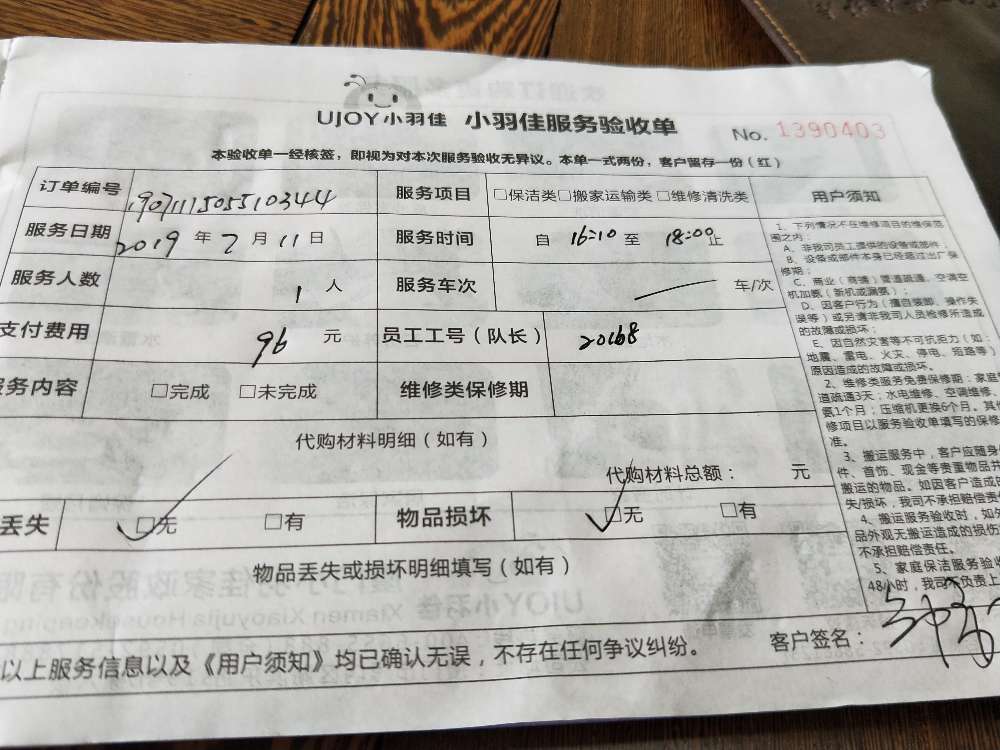 UJOY小羽佳 小羽佳服务验收单 No. 1390403
本验收单一经核签，即视为对本次服务验收无异议。本单一式两份，客户留存一份（红）
订单编号 19071115055103444 服务项目 □保洁类□搬家运输类□维修清洗类
服务日期 2019 年 7 月 11 日 服务时间 自 16:10 至 18:00止
服务人数 1 人 服务车次 车/次
支付费用 96 元 员工工号（队长） 20168
服务内容 □完成 □未完成 维修类保修期
代购材料明细（如有）
代购材料总额： 元
丢失 □无 □有 物品损坏 □无 □有
物品丢失或损坏明细填写（如有）
以上服务信息以及《用户须知》均已确认无误，不存在任何争议纠纷。 客户签名：
用户须知
1、下列情况不在维修项目的维保范
围之内：
A、非我司员工提供的设备或部件；
B、设备或部件本身已经超过出厂保
修期；
C、商业（商铺）管道疏通、空调空
机加氨（新机或漏氨）；
D、因客户行为（擅自装卸、操作失
误等）或另请非我司人员检修所造成
的故障或损坏；
E、因自然灾害等不可抗拒力（如：
地震、雷电、火灾、停电、短路等）
原因造成的故障或损坏。
2、维修类服务免费保修期：家庭
道疏通3天；水电维修、空调维修、
氨1个月；压缩机更换6个月。其
修项目以服务验收单填写的保修
准。
3、搬运服务中，客户应随身
件、首饰、现金等贵重物品并
搬运的物品。如因客户造成
失/损坏，我司不承担赔偿责
4、搬运服务验收时，如
品外观无搬运造成的损伤
不承担赔偿责任。
5、家庭保洁服务验收
48小时，我司不负责上